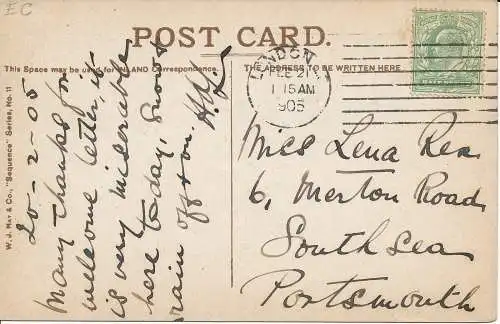 EC
POST CARD.
This Space may be used for INLAND Correspondence.
THE ADDRESS TO BE WRITTEN HERE
W. J. MAY & Co., "Sequence" Series, No. 11
LONDON
FE 21
1 15AM
905
20-2-05
Many thanks for
welcome letter, it
is very miserable
here today, snow &
rain off & on.
Miss Lena Rex
6, Merton Road
Southsea
Portsmouth